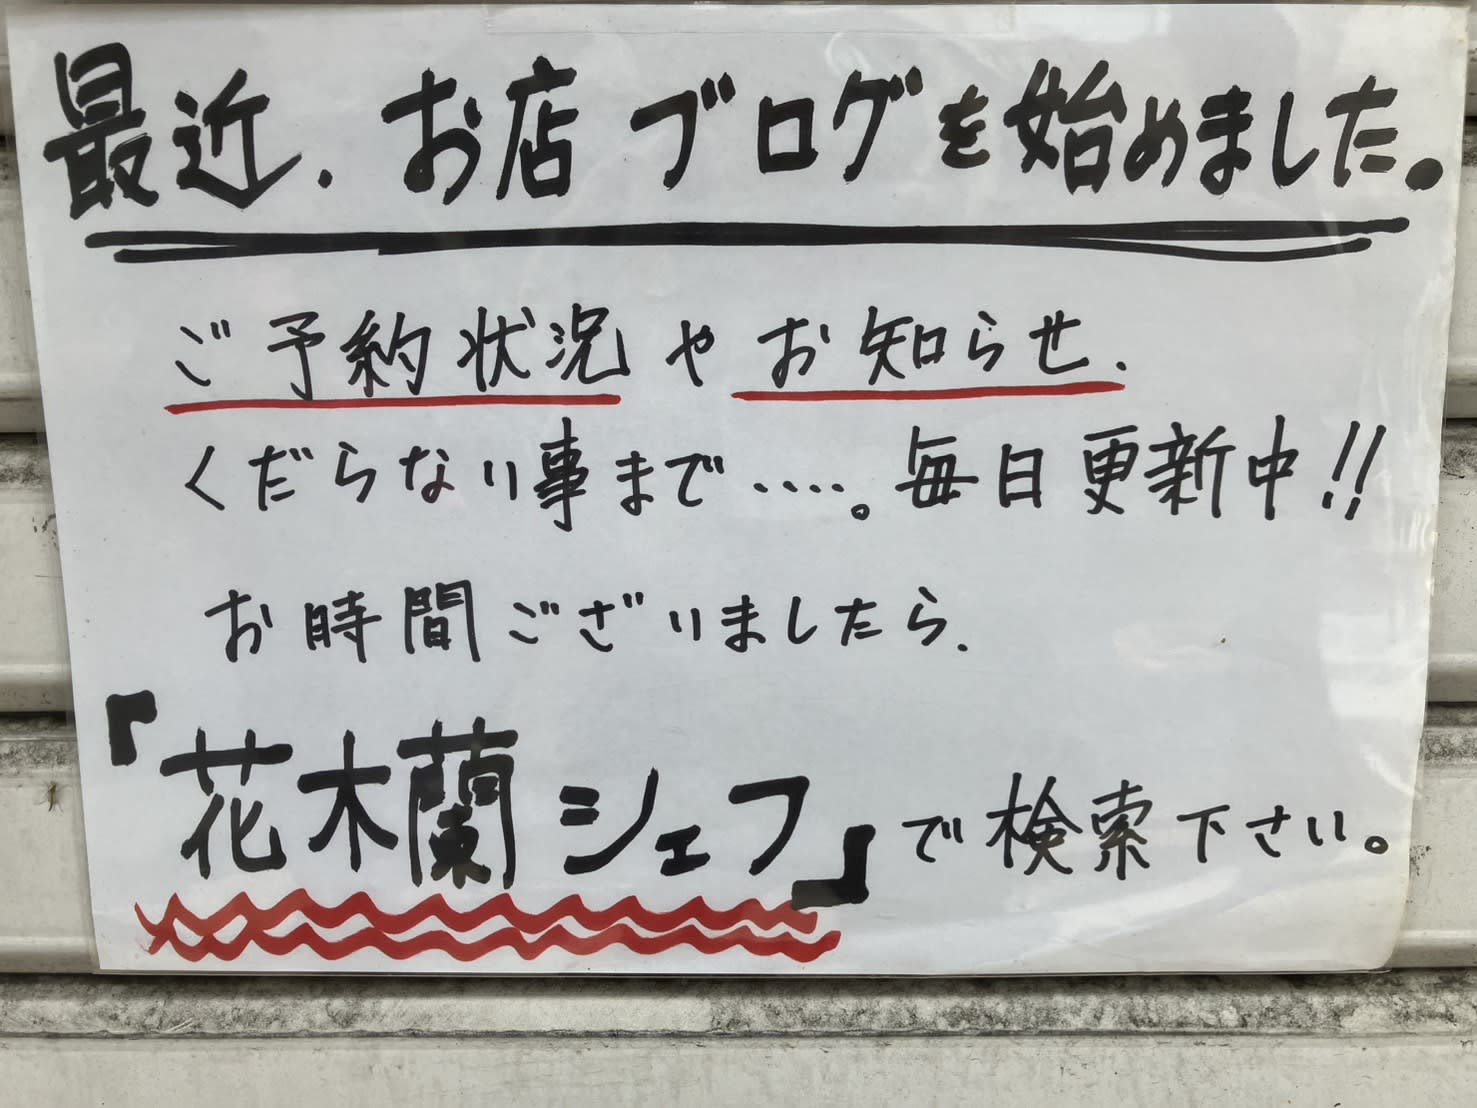 最近、お店ブログを始めました。
ご予約状況やお知らせ、
くだらない事まで‥‥。毎日更新中!!
お時間ございましたら、
『花木蘭シェフ』で検索下さい。